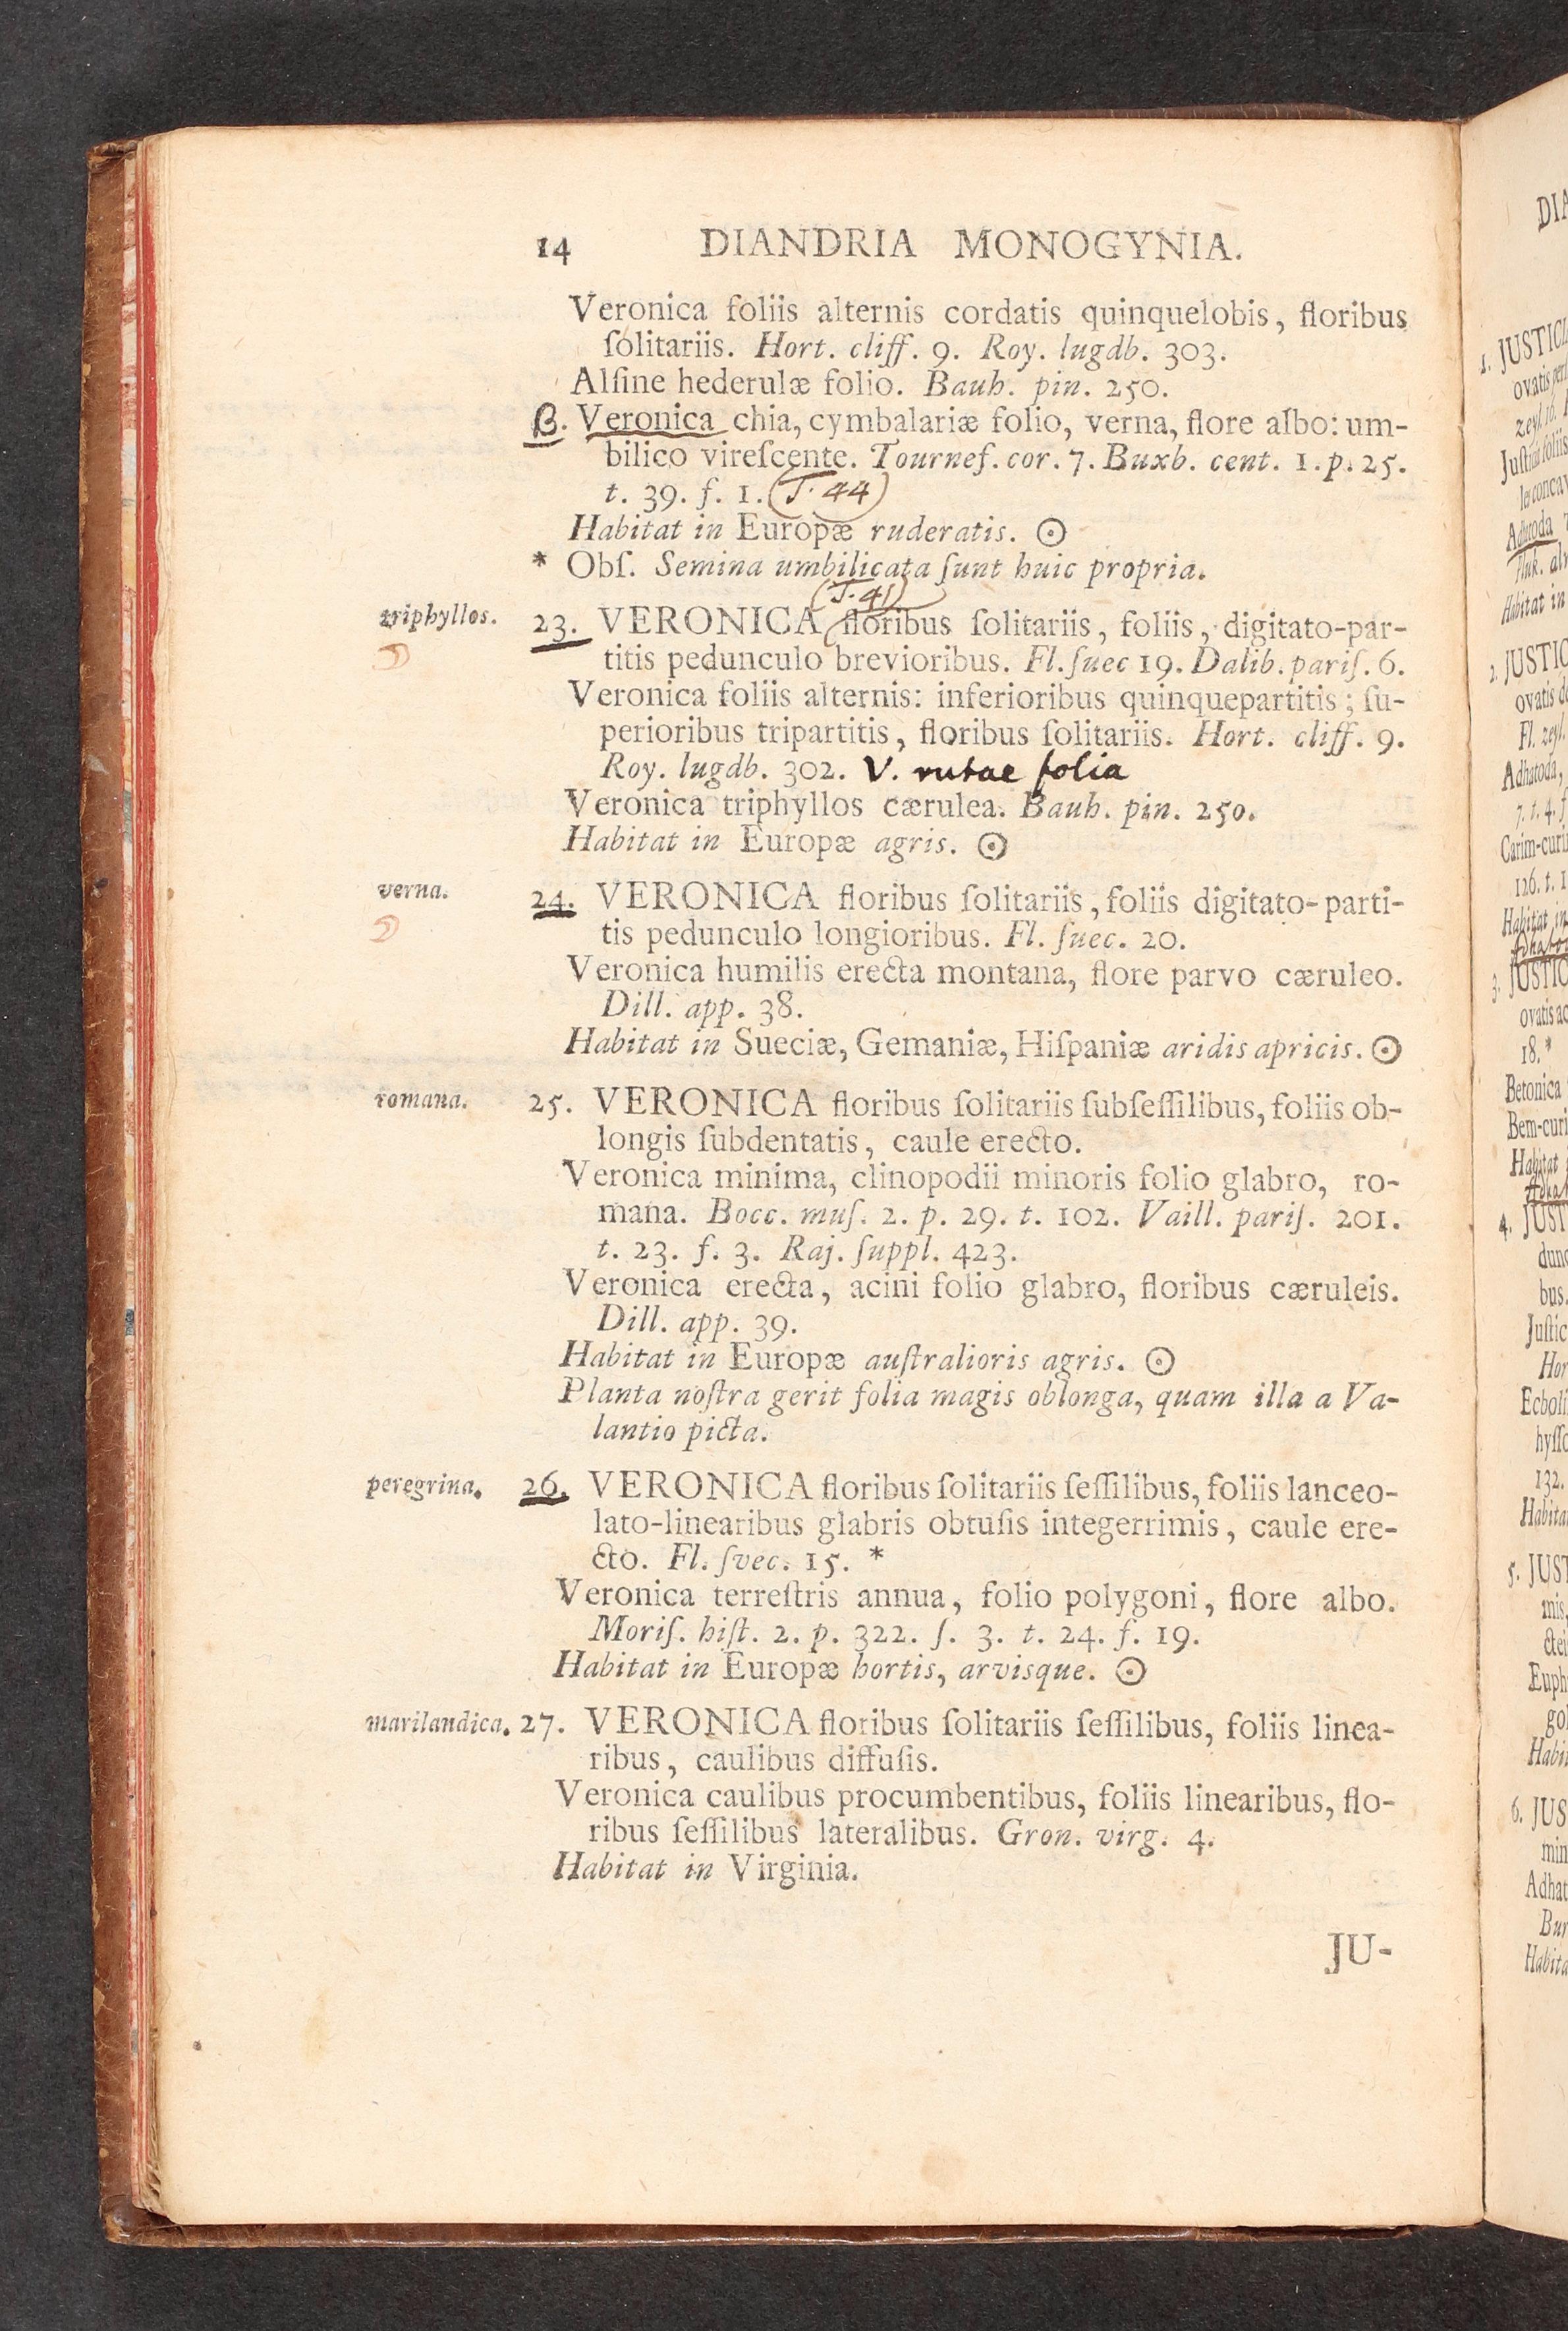 14 DIANDRIA MONOGYNIA.
Veronica foliis alternis cordatis quinquelobis, floribus
ſolitariis. Hort. cliff. 9. Roy. lugdb. 303.
Alſine hederulæ folio. Bauh. pin. 250.
β. Veronica chia, cymbalariæ folio, verna, flore albo: um-
bilico vireſcente. Tournef. cor. 7. Buxb. cent. 1. p. 25.
t. 39. f. 1. (T. 44)
Habitat in Europæ ruderatis. ☉
* Obſ. Semina umbilicata ſunt huic propria.
(T. 41)
triphyllos. 23. VERONICA floribus ſolitariis, foliis, digitato-par-
titis pedunculo brevioribus. Fl. ſuec 19. Dalib. pariſ. 6.
Veronica foliis alternis: inferioribus quinquepartitis; ſu-
perioribus tripartitis, floribus ſolitariis. Hort. cliff. 9.
Roy. lugdb. 302. V. rutae folia
Veronica triphyllos cærulea. Bauh. pin. 250.
Habitat in Europæ agris. ☉
verna. 24. VERONICA floribus ſolitariis, foliis digitato-parti-
tis pedunculo longioribus. Fl. ſuec. 20.
Veronica humilis erecta montana, flore parvo cæruleo.
Dill. app. 38.
Habitat in Sueciæ, Gemaniæ, Hiſpaniæ aridis apricis. ☉
romana. 25. VERONICA floribus ſolitariis ſubſeſſilibus, foliis ob-
longis ſubdentatis, caule erecto.
Veronica minima, clinopodii minoris folio glabro, ro-
mana. Bocc. muſ. 2. p. 29. t. 102. Vaill. pariſ. 201.
t. 23. f. 3. Raj. ſuppl. 423.
Veronica erecta, acini folio glabro, floribus cæruleis.
Dill. app. 39.
Habitat in Europæ auſtralioris agris. ☉
Planta noſtra gerit folia magis oblonga, quam illa a Va-
lantio picta.
peregrina. 26. VERONICA floribus ſolitariis ſeſſilibus, foliis lanceo-
lato-linearibus glabris obtuſis integerrimis, caule ere-
cto. Fl. ſvec. 15. *
Veronica terreſtris annua, folio polygoni, flore albo.
Moriſ. hiſt. 2. p. 322. ſ. 3. t. 24. f. 19.
Habitat in Europæ hortis, arvisque. ☉
marilandica. 27. VERONICA floribus ſolitariis ſeſſilibus, foliis linea-
ribus, caulibus diffuſis.
Veronica caulibus procumbentibus, foliis linearibus, flo-
ribus ſeſſilibus lateralibus. Gron. virg. 4.
Habitat in Virginia.
JU-